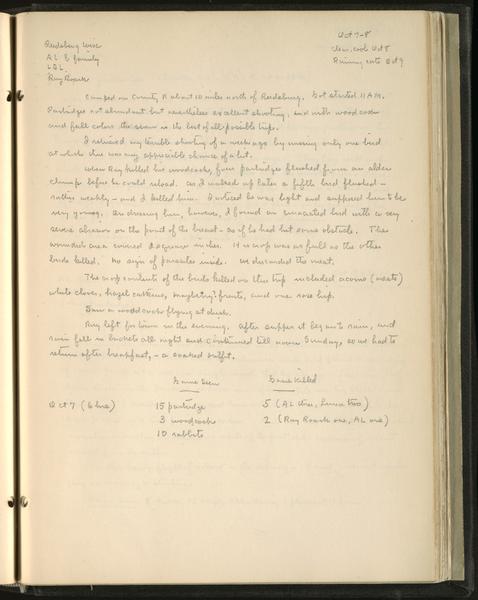 Reedsburg Wisc
AL & family
LBL
Ray Roark
Oct 7-8
clear, cool Oct 8
Raining into Oct 9
Camped on County K about 10 miles north of Reedsburg. Got started 11 AM.
Partridges not abundant but nevertheless excellent shooting, and with woodcock
and fall colors the scene is the best of all possible trips.
I retrieved my terrible shooting of a week ago by missing only one bird
at which there was any appreciable chance of a hit.
When Ray killed his woodcock, four partridges flushed from an alder
clump before he could reload. As I walked up later a fifth bird flushed -
rather weakly - and I killed him. I noticed he was light and supposed him to be
very young. On dressing him, however, I found an emaciated bird with a very
severe abrasion on the front of the breast - as if he had hit some obstacle. The
wounded area covered 2 square inches. His crop was as full as the other
birds killed. No sign of parasites inside. We discarded the meat.
The crop contents of the birds killed on this trip included acorns (meats)
white clover, hazel catkins, fruits, and one rose hip.
Saw a woodcock flying at dusk.
Ray left for home in the evening. After supper it began to rain, and
rain fell in buckets all night and continued till noon Sunday, so we had to
return after breakfast, - a soaked outfit.
Game Seen
Game Killed
Oct 7 (6 hrs)
15 partridge
5 (AL three, Luna two)
3 woodcock
2 (Ray Roark one, AL one)
10 rabbits